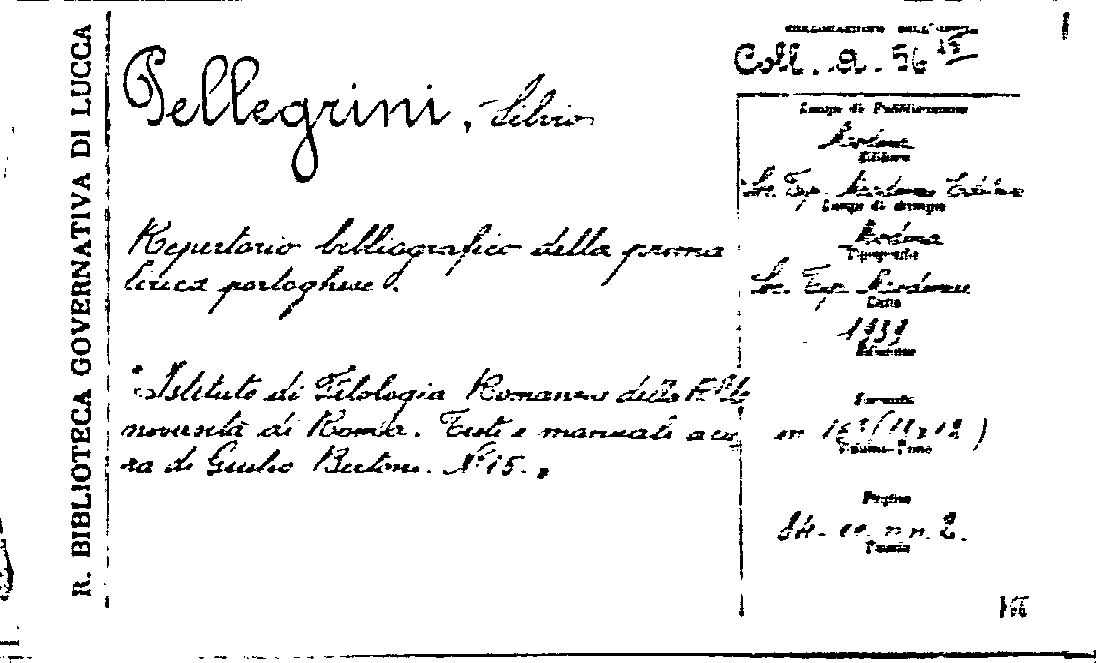 R. BIBLIOTECA GOVERNATIVA DI LUCCA
COLLOCAZIONE DELL'OPERA
Coll. a. 56
Pellegrini, Silvio
Luogo di Pubblicazione
Modena
Editore
Soc. Tip. Modenese Editrice
Luogo di stampa
Modena
Tipografia
Soc. Tip. Modenese
Data
1939
Edizione
Repertorio bibliografico della prima
lirica portoghese.
"Istituto di Filologia Romanza della R. Uni
versità di Roma. Testi e manuali a cu
ra di Giulio Bertoni. N. 15."
Formato
in 16º
Volume-Tomo
Pagine
84. cc. n n. 2.
Tavole